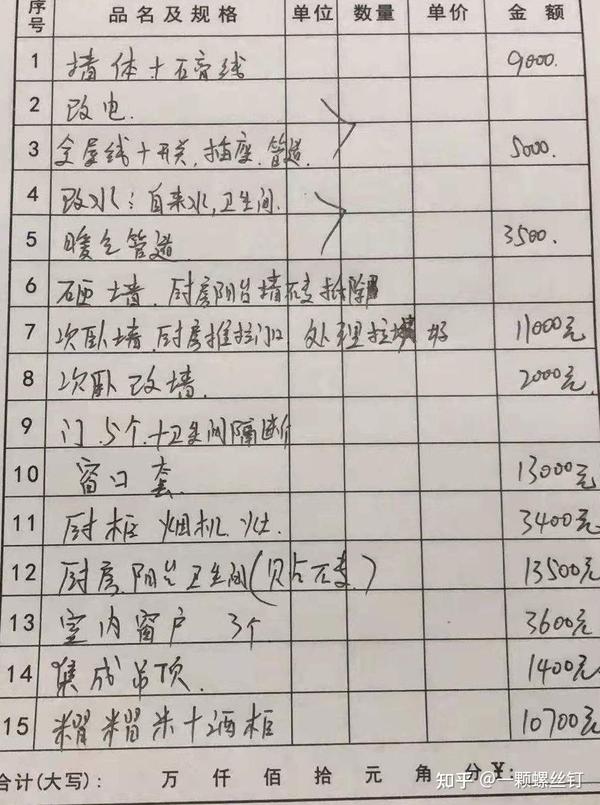 序号 品名及规格 单位 数量 单价 金额
1 墙体+石膏线 9000.
2 改电.
3 全屋线+开关.插座.管道. 5000.
4 改水:自来水,卫生间.
5 暖气管道 3500.
6 砸墙.厨房阳台墙砖拆除
7 次卧墙.厨房推拉门口 处理垃圾 11000元
8 次卧改墙. 2000元
9 门.5个.+卫生间隔断
10 窗口套. 13000元
11 厨柜 烟机.灶. 3400元
12 厨房.阳台.卫生间(贝占石专) 13500元
13 室内窗户 3个 3600元
14 集成吊顶. 1400元
15 榻榻米+酒柜 10700元
合计(大写): 万 仟 佰 拾 元 角 分 ¥:
知乎 @一颗螺丝钉